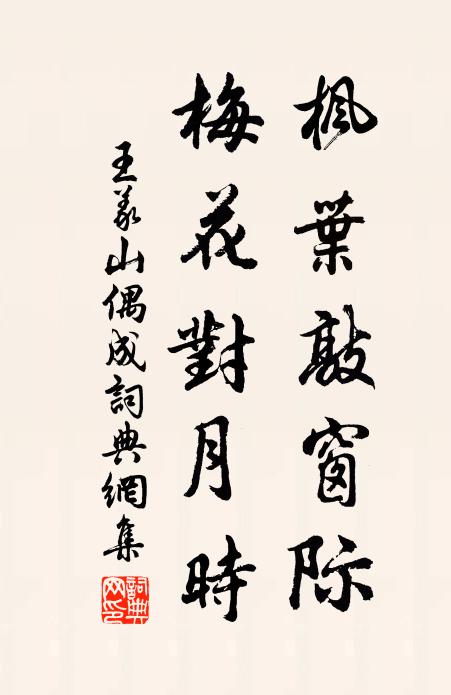 枫葉敲窗际
梅花對月時
王义山偶成詞典網集
詞典网印